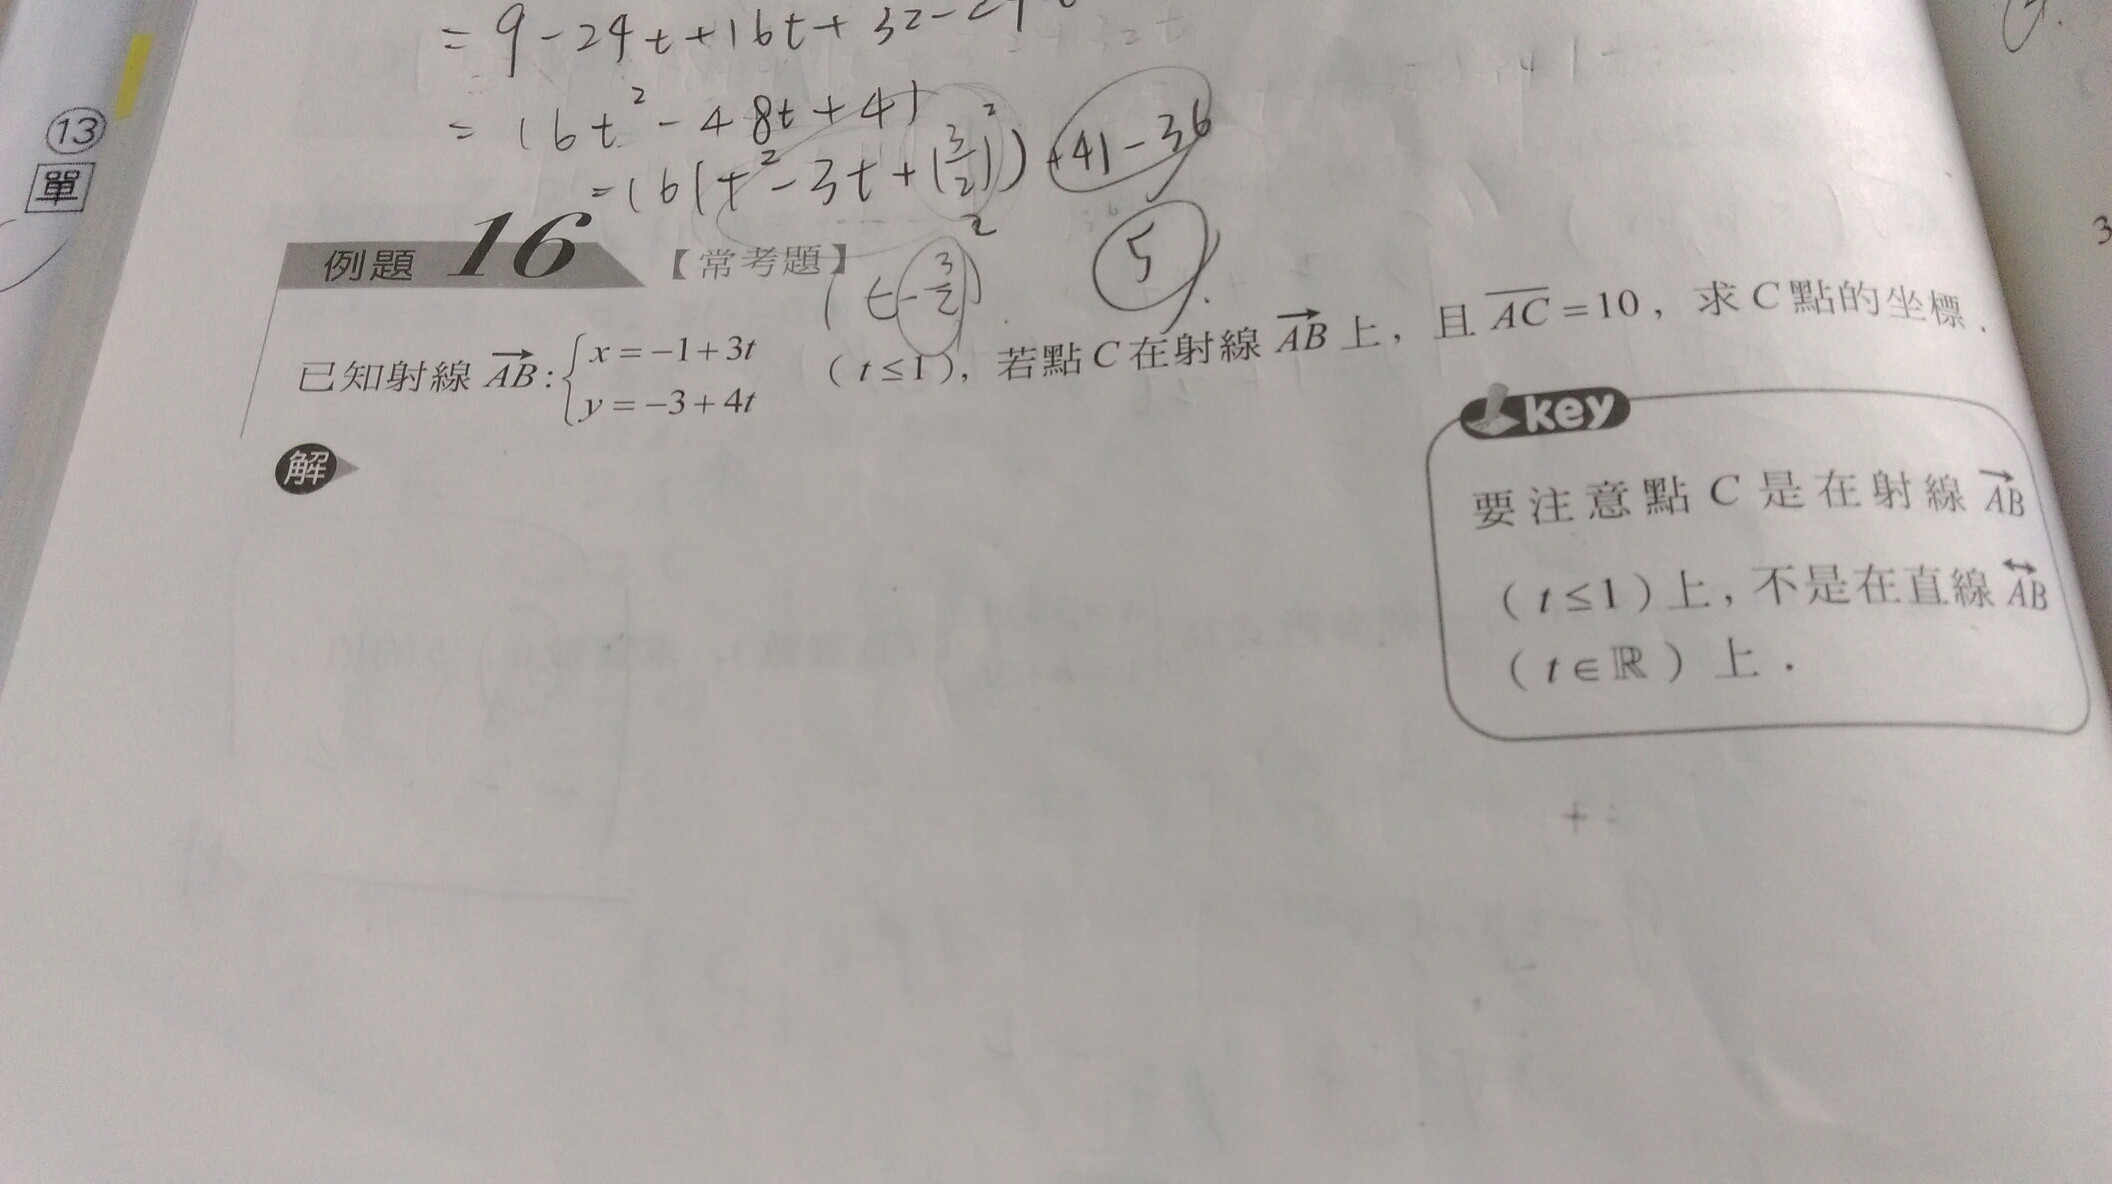 = 9 - 24t + 16t + 32 -
= 16t² - 48t + 41
= 16(t² - 3t + (3/2)²) + 41 - 36
⑬
單
例題 16 【常考題】
(t - 3/2)²
5
已知射線 AB: { x = -1 + 3t
y = -3 + 4t
( t ≤ 1 ), 若點 C 在射線 AB 上, 且 AC = 10, 求 C 點的坐標.
解
key
要注意點 C 是在射線 AB
( t ≤ 1 ) 上, 不是在直線 AB
( t ∈ ℝ ) 上.
3